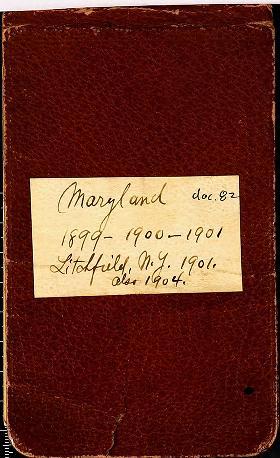 Maryland doc. 82
1899 - 1900 - 1901
Litchfield, N.Y. 1901.
also 1904.